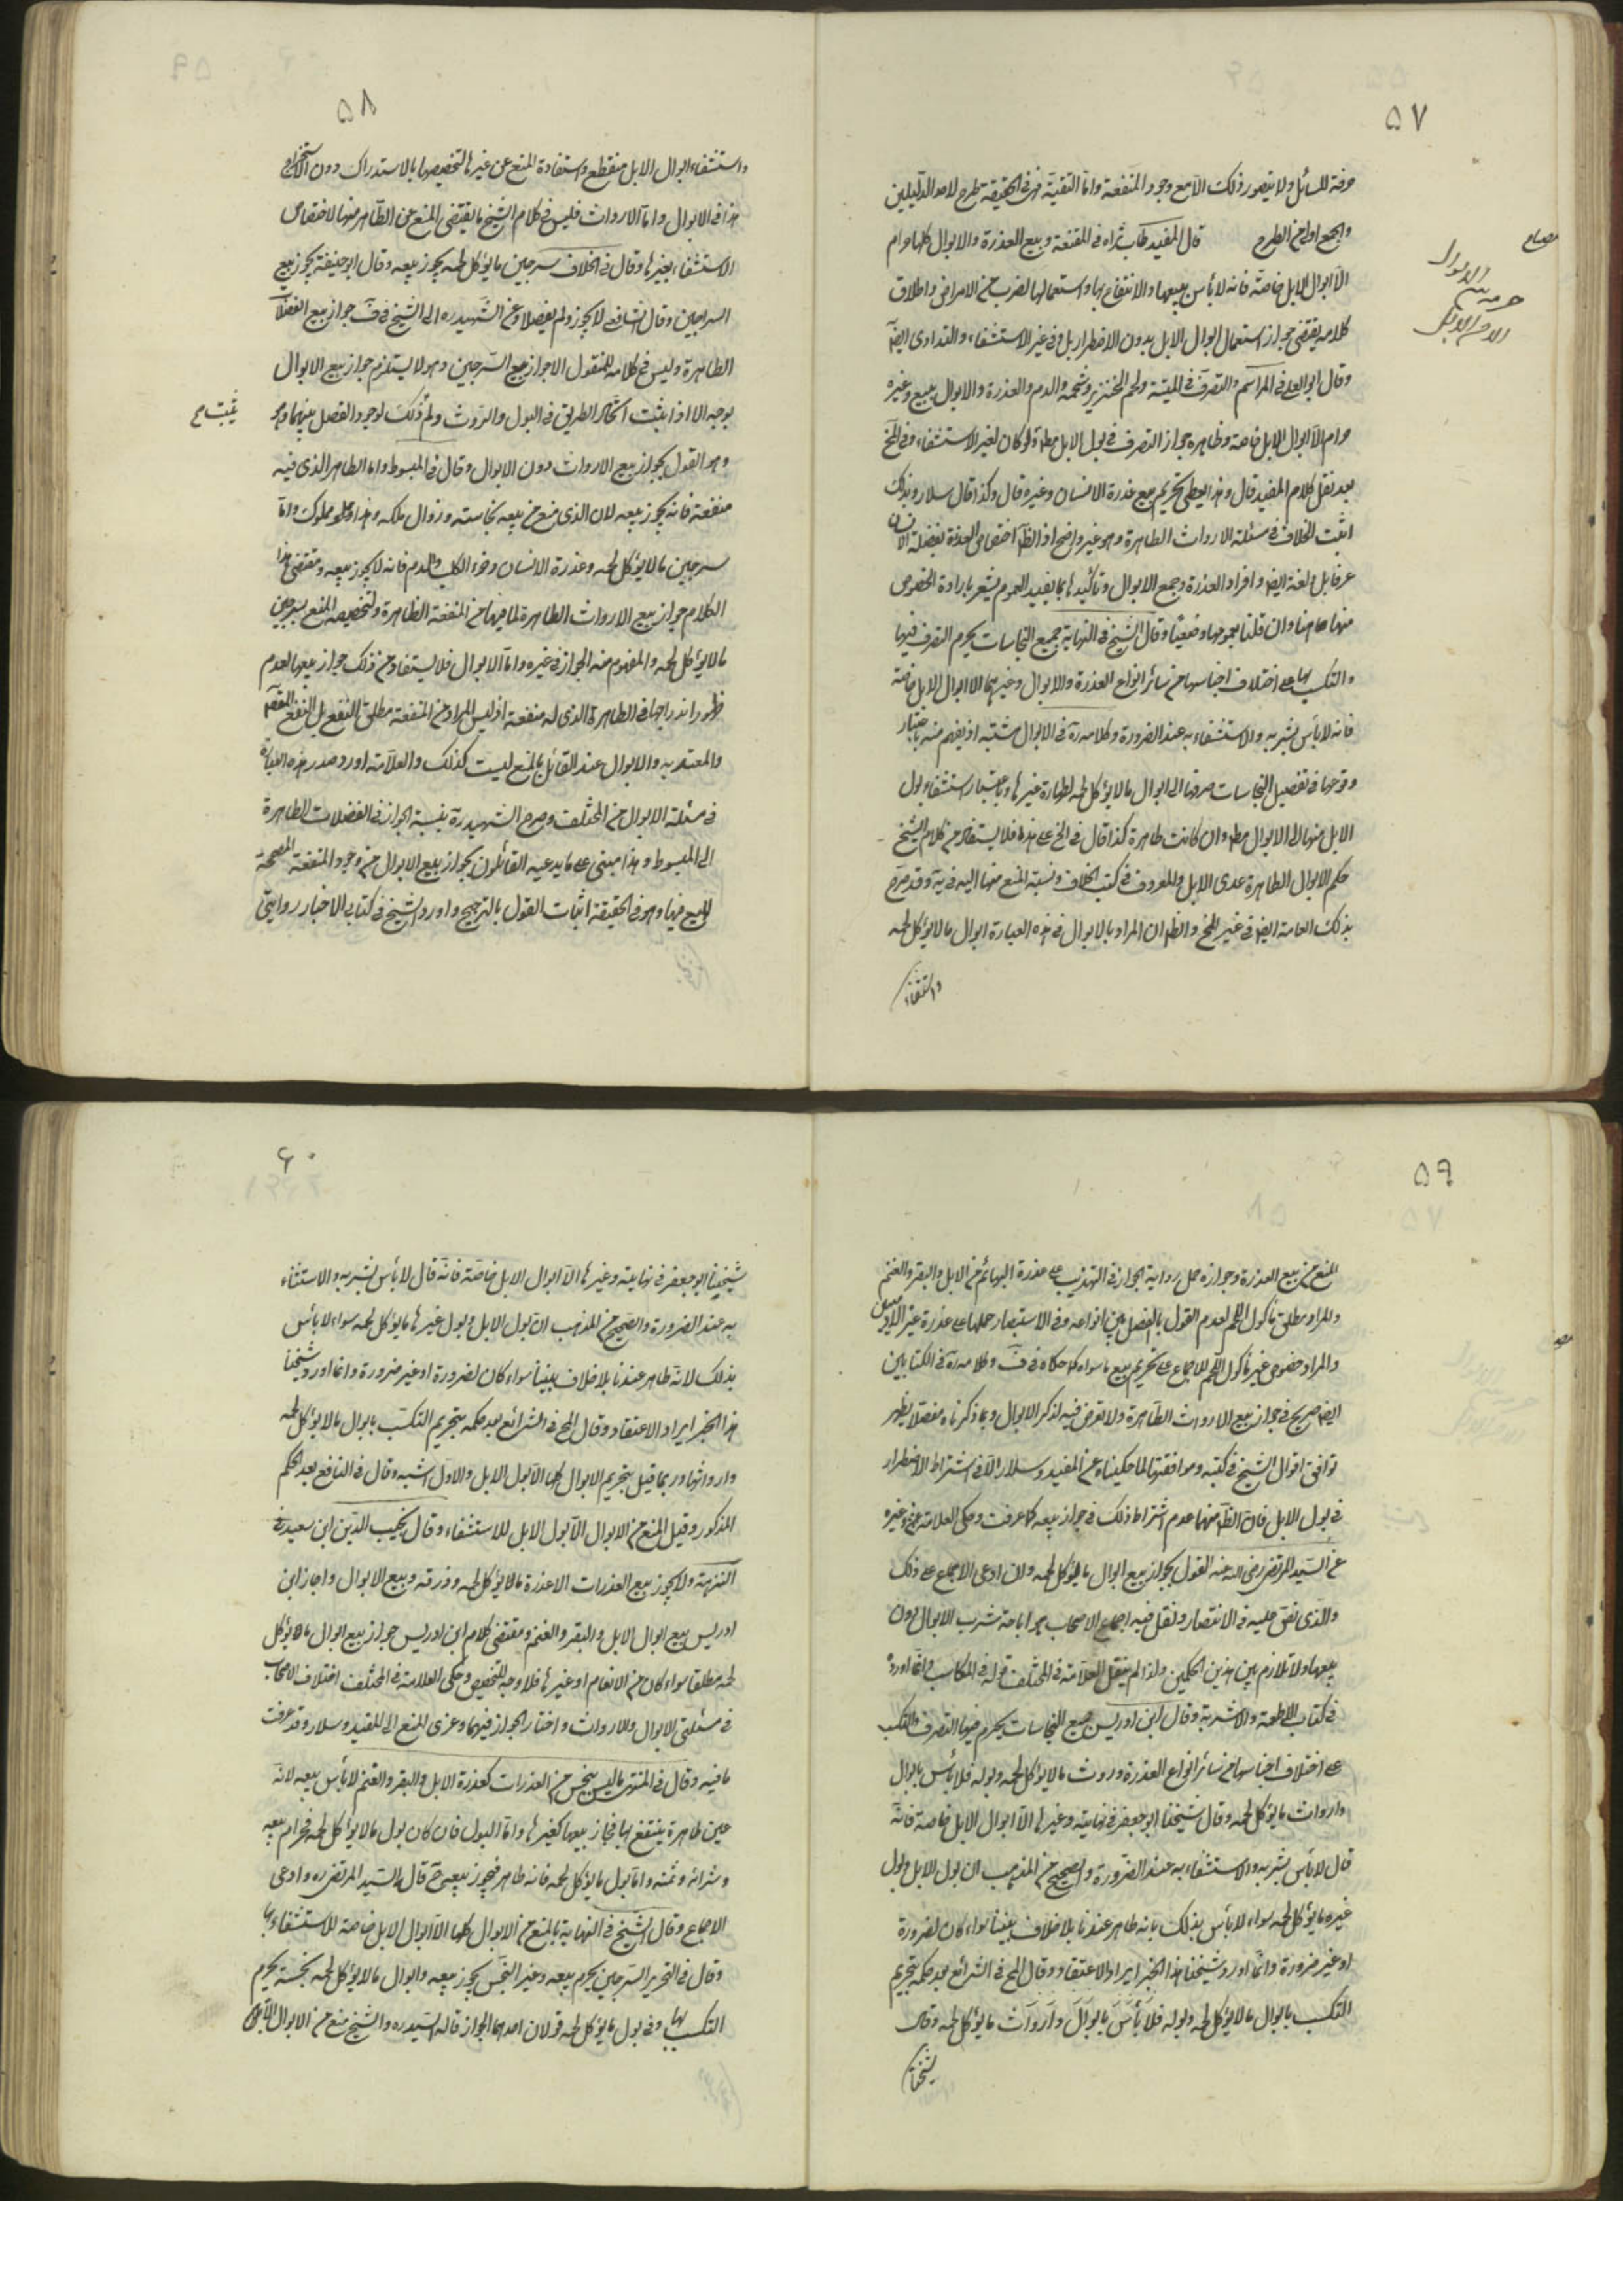 ٥٧
حرفة للسائل ولا يتصور ذلك الا مع وجود المنفعة واما التقية فهي في الحقيقة طرح لاحد الدليلين
والجمع اولى من الطرح قال المفيد طاب ثراه في المقنعة وبيع العذرة والابوال كلها حرام
الا ابوال الابل خاصة فانه لا بأس ببيعها والانتفاع بها واستعمالها لضرب من الامراض واطلاق
كلامه يقتضي جواز استعمال ابوال الابل بدون الاضطرار بل وفي غير الاستشفاء والتداوي ايضا
وقال ابو يعلى في المراسم والتصرف في الميتة ولحم الخنزير وشحمه والدم والعذرة والابوال ببيع وغيره
حرام الا ابوال الابل خاصة وظاهره جواز التصرف في بول الابل مطلقا ولو كان لغير الاستشفاء وفي المخ
بعد نقل كلام المفيد قال وهذا يعطي تحريم بيع عذرة الانسان وغيره قال وكذا قال سلار وبذلك
اثبت الخلاف في مسئلة الارواث الطاهرة وهو غير واضح اذ الظ اختصاص العذرة بفضلة الانسان
عرفا بل ولغة ايضا وافراد العذرة وجمع الابوال وتأكيدها بما يفيد العموم يشعر بارادة الخصوص
منها هاهنا وان قلنا بعمومها وضعيا وقال الشيخ في النهاية جميع النجاسات يحرم التصرف فيها
والتكسب بها على اختلاف اجناسها من سائر انواع العذرة والابوال وغيرهما الا ابوال الابل خاصة
فانه لا بأس بشربه والاستشفاء به عند الضرورة وكلامه ره في الابوال مشتبه اذ يفهم منه باعتبار
وقوعها في تفصيل النجاسات صرفها الى ابوال ما لا يؤكل لحمه لطهارة غيرها وباعتبار استثناء بول
الابل منها الى الابوال مطلقا وان كانت طاهرة كذا قال في المخ على هذا فلا يستفاد من كلام الشيخ
حكم الابوال الطاهرة عدى الابل والمعروف في كتب الخلاف ونسبة المنع منها اليه في ية وقد صرح
بذلك العلامة ايضا في غير المخ والظ ان المراد بالابوال في هذه العبارة ابوال ما لا يؤكل لحمه
واستثناء
حرمة بيع الابوال
الا بول الابل
٥٨
واستثناء ابوال الابل منقطع واستفادة المنع عن غيرها لتخصيصها بالاستدراك دون الاستخراج
هذا في الابوال واما الارواث فليس في كلام الشيخ ما يقتضي المنع عن الطاهر منها لاختصاص
الاستثناء بغيرها وقال في الخلاف سرجين ما يؤكل لحمه يجوز بيعه وقال ابو حنيفة يجوز بيع
السراجين وقال الشافعي لا يجوز ولم يفصلا وعن الشهيد ره الى الشيخ في ف جواز بيع الفضلات
الطاهرة وليس في كلامه المنقول الا جواز بيع السرجين وهو لا يستلزم جواز بيع الابوال
بوجه الا اذا يثبت اتحاد الطريق في البول والروث ولم ذلك لوجود الفصل بينهما وهو
وهو القول بجواز بيع الارواث دون الابوال وقال في المبسوط واما الطاهر الذي فيه
منفعة فانه يجوز بيعه لان الذي منع من بيعه نجاسته وزوال ملكه وهذا مملوك واما
سرجين ما لا يؤكل لحمه وعذرة الانسان وخرء الكلب والدم فانه لا يجوز بيعه ومقتضى هذا
الكلام جواز بيع الارواث الطاهرة لما فيها من المنفعة الظاهرة ولتخصيصه المنع بسرجين
ما لا يؤكل لحمه والمفهوم منه الجواز في غيره واما الابوال فلا يستفاد من ذلك جواز بيعها لعدم
ظهور اندراجها في الطاهر الذي له منفعة اذ ليس المراد من المنفعة مطلق النفع بل النفع
والمعتد به والابوال عند القائل بالمنع ليست كذلك والعلامة اورد صدر هذه العبارة
في مسئلة الابوال من المختلف وصرح الشهيد ره بنسبة الجواز في الفضلات الطاهرة
الى المبسوط وهذا مبني على ما يدعيه القائلون بجواز بيع الابوال من وجود المنفعة المصححة
للبيع فيها وهو في الحقيقة اثبات القول بالترجيح واورد الشيخ في كتابي الاخبار روايتي
يثبت م
٥٩
المنع من بيع العذرة وجوازه حمل رواية الجواز في التهذيب على عذرة البهائم من الابل والبقر والغنم
والمراد مطلق مأكول اللحم لعدم القول بالفصل بين انواعه وفي الاستبصار حملها على عذرة غير الآدميين
والمراد خصوص غير مأكول اللحم للاجماع على تحريم بيع ما سواه كما حكاه في ف وكلامه ره في الكتابين
ايضا صريح في جواز بيع الارواث الطاهرة ولا تعرض فيه لذكر الابوال وبما ذكرناه مفصلا يظهر
توافق اقوال الشيخ في كتبه وموافقتها لما حكيناه عن المفيد وسلار الا في اشتراط الاضطرار
في بول الابل فان الظ منهما عدم اشتراط ذلك في جواز بيعه كما عرفت وحكى العلامة وغيره
عن السيد المرتضى رضي الله عنه القول بجواز بيع ابوال ما يؤكل لحمه وان ادعى الاجماع على ذلك
والذي نص عليه في الانتصار ونقل فيه اجماع الاصحاب هو اباحة شرب الابوال دون
بيعها ولا تلازم بين هذين الحكمين ولذا لم ينقل العلامة في المختلف قوله في المكاسب وانما اورده
في كتاب الاطعمة والاشربة وقال ابن ادريس جميع النجاسات يحرم فيها التصرف والتكسب
على اختلاف اجناسها من سائر انواع العذرة وروث ما لا يؤكل لحمه وبوله فلا بأس بابوال
وارواث ما يؤكل لحمه وقال شيخنا ابو جعفر في نهايته وغيرها الا ابوال الابل خاصة فانه
قال لا بأس بشربه والاستشفاء به عند الضرورة والصحيح من المذهب ان بول الابل وبول
غيره ما يؤكل لحمه سواء لا بأس بذلك بانه طاهر عندنا بلا خلاف بيننا سواء كان لضرورة
او غير ضرورة وانما اورد شيخنا هذا الخبر ايرادا لا اعتقادا وقال المح في الشرائع بعد حكمه بتحريم
التكسب بابوال ما لا يؤكل لحمه وبوله فلا بأس بابوال وارواث ما يؤكل لحمه وقال
شيخنا
٦٠
شيخنا ابو جعفر في نهايته وغيرها الا ابوال الابل خاصة فانه قال لا بأس بشربه والاستشفاء
به عند الضرورة والصحيح من المذهب ان بول الابل وبول غيرها ما يؤكل لحمه سواء لا بأس
بذلك لانه طاهر عندنا بلا خلاف بيننا سواء كان لضرورة او غير ضرورة وانما اورد شيخنا
هذا الخبر ايراد الاعتقاد وقال المح في الشرائع بعد حكمه بتحريم التكسب بابوال ما لا يؤكل لحمه
وارواثها وربما قيل بتحريم الابوال كلها الا بول الابل والاول اشبه وقال في النافع بعد الحكم
المذكور وقيل بالمنع من الابوال الا بول الابل للاستشفاء وقال نجيب الدين ابن سعيد في
النزهة ولا يجوز بيع العذرات الا عذرة ما لا يؤكل لحمه وذرقه وبيع الابوال واجاز ابن
ادريس بيع ابوال الابل والبقر والغنم ومقتضى كلام ابن ادريس جواز بيع ابوال ما يؤكل
لحمه مطلقا سواء كان من الانعام او غيرها فلا وجه للتخصيص وحكى العلامة في المختلف اختلاف الاصحاب
في مسئلتي الابوال والارواث واختار الجواز فيهما وعزى المنع الى المفيد وسلار وقد عرفت
ما فيه وقال في المنتهى ما ليس بنجس من العذرات كعذرة الابل والبقر والغنم لا بأس ببيعه لانه
عين طاهرة ينتفع بها فجاز بيعها كغيرها واما البول فان كان بول ما لا يؤكل لحمه فحرام بيعه
وشرائه وثمنه واما بول ما يؤكل لحمه فانه طاهر فيجوز بيعه ح قال السيد المرتضى ره وادعى
الاجماع وقال الشيخ في النهاية بالمنع من الابوال كلها الا ابوال الابل خاصة للاستشفاء بها
وقال في التحرير السرجين يحرم بيعه وغير النجس يجوز بيعه وابوال ما لا يؤكل لحمه نجسة يحرم
التكسب بها وفي بول ما يؤكل لحمه قولان احدهما الجواز قاله السيد ره والشيخ منع من الابوال